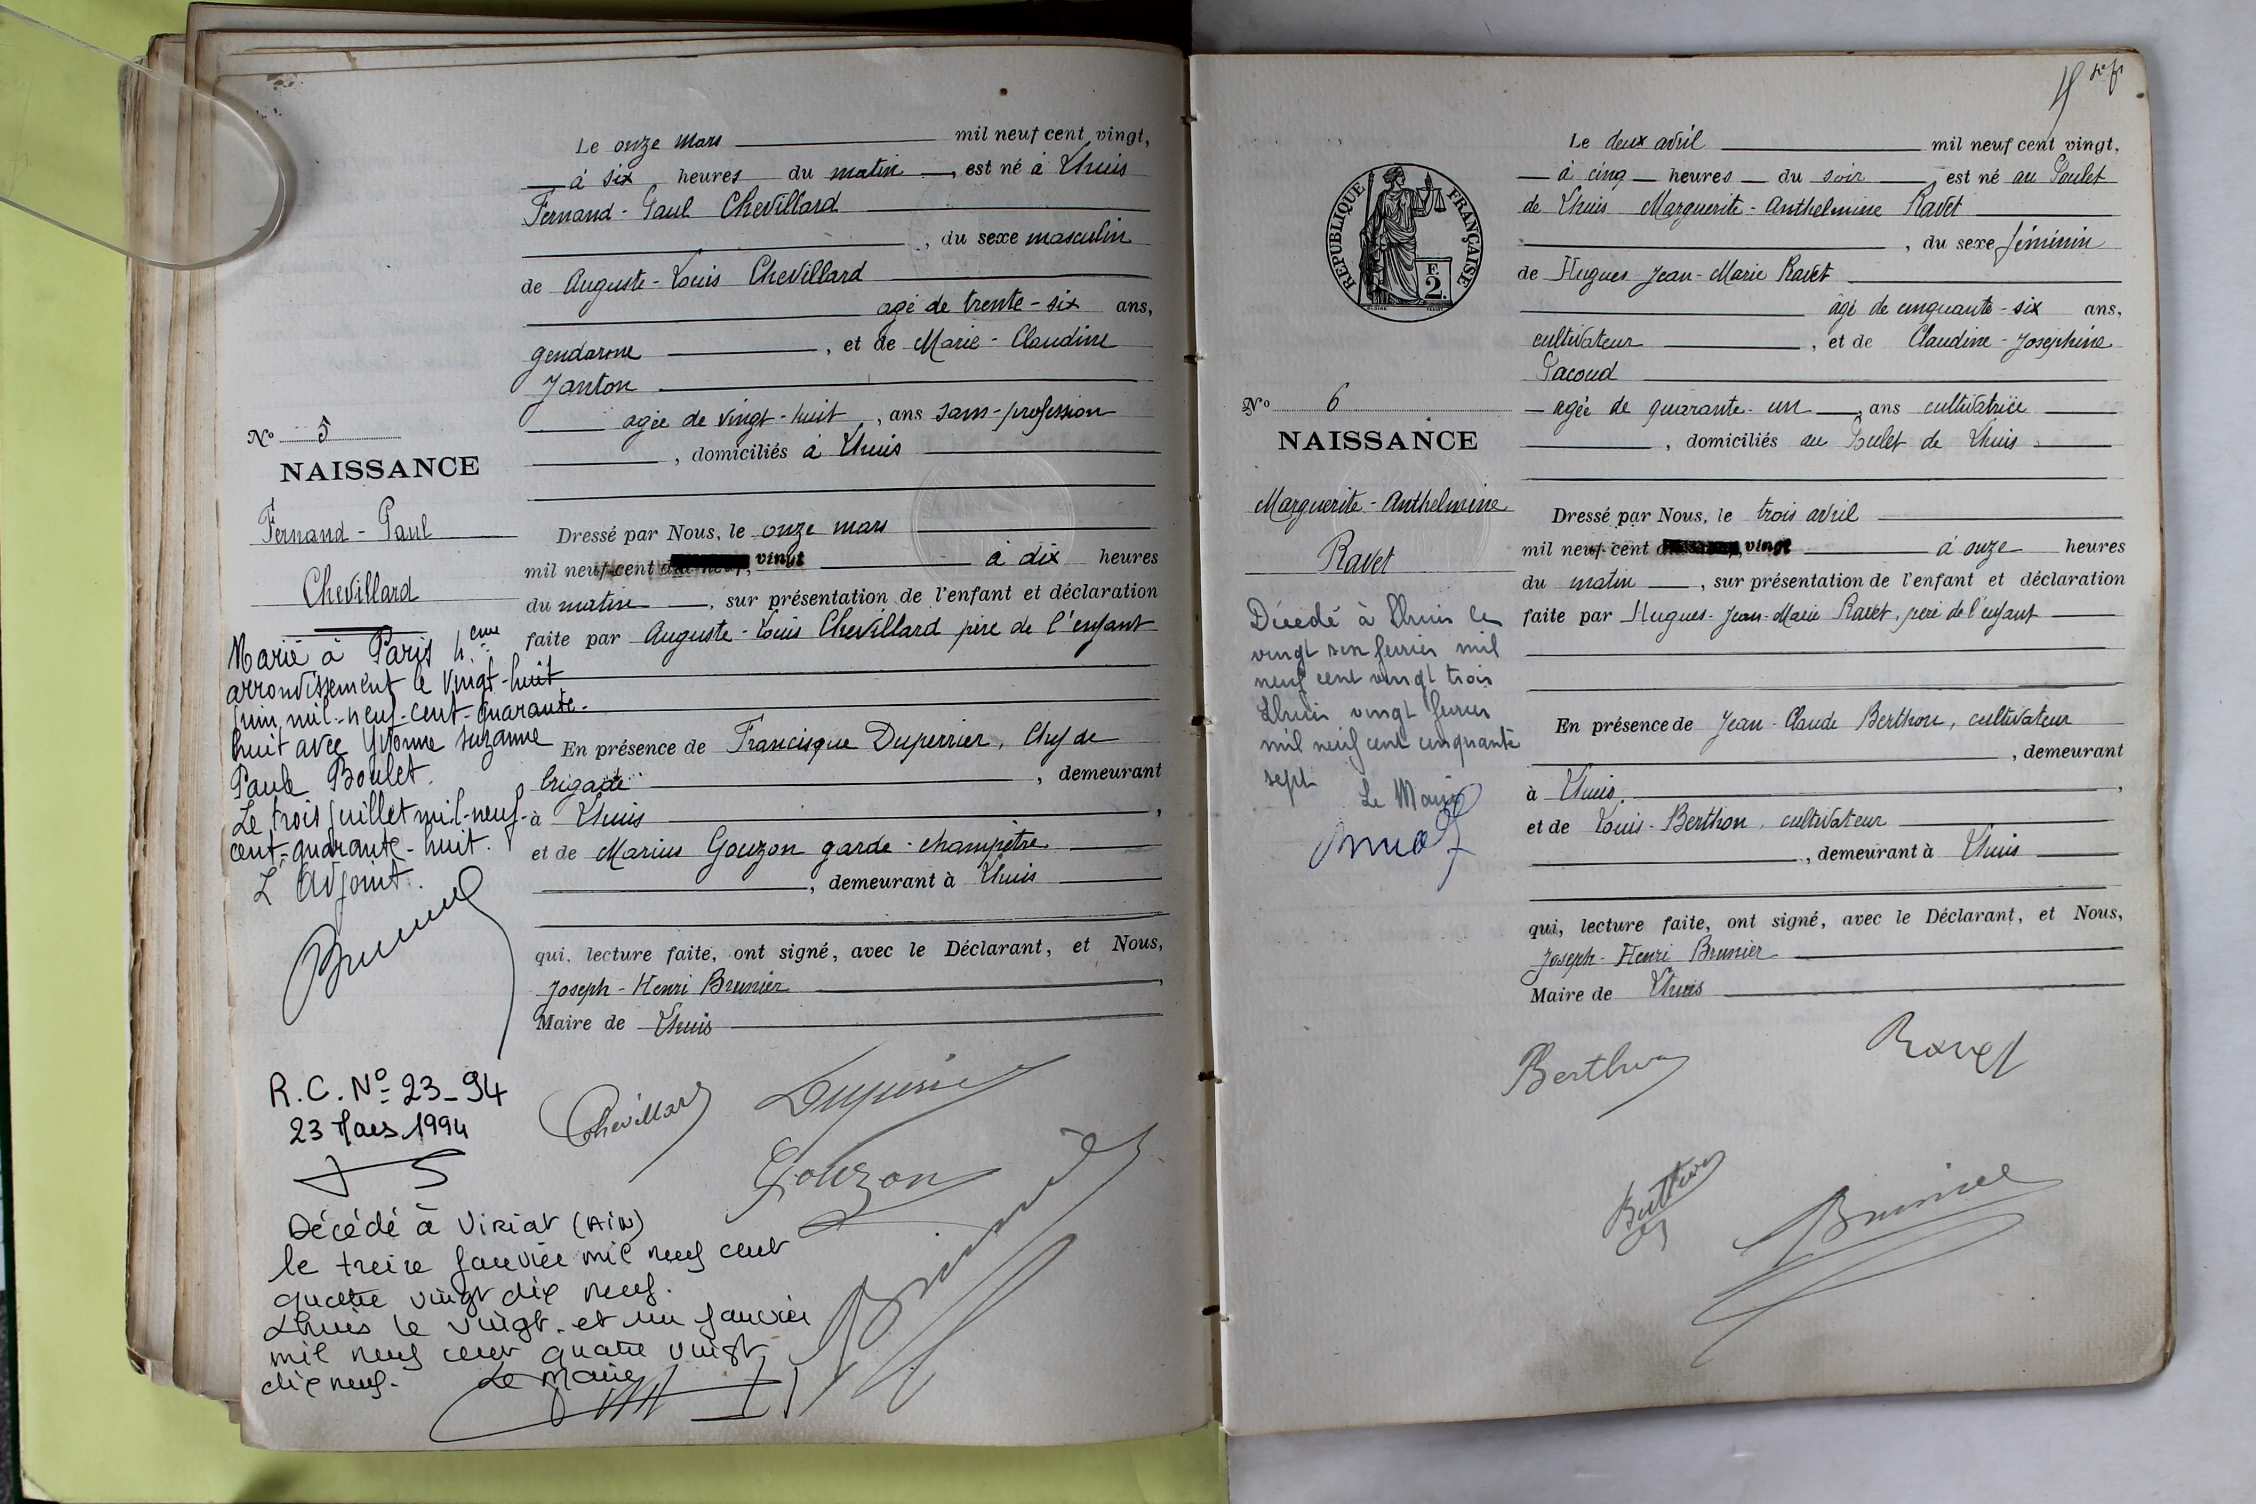 Le onze mars mil neuf cent vingt,
à six heures du matin, est né à Lhuis
Fernand-Paul Chevillard
, du sexe masculin
de Auguste-Louis Chevillard
agé de trente-six ans,
gendarme, et de Marie-Claudine
Janton
agée de vingt-huit, ans sans-profession
, domiciliés à Lhuis
No 5
NAISSANCE
Fernand-Paul
Chevillard
Dressé par Nous, le onze mars
mil neuf cent vingt à dix heures
du matin, sur présentation de l'enfant et déclaration
faite par Auguste-Louis Chevillard père de l'enfant
Marié à Paris 4.eme
arrondissement le vingt-huit
juin mil-neuf-cent-quarante-
huit avec Yvonne Suzanne
Paule Boulet.
Le trois juillet mil-neuf-
cent-quarante-huit.
L'Adjoint.
En présence de Francisque Duperrier, Chef de
brigade, demeurant
à Lhuis,
et de Marius Gouzon garde-champêtre
, demeurant à Lhuis
qui, lecture faite, ont signé, avec le Déclarant, et Nous,
Joseph-Henri Brunier,
Maire de Lhuis
R.C. No 23-94
23 Mars 1994
Chevillard
Duperrier
Gouzon
Brunier
Décédé à Viriat (AiN)
le treize janvier mil neuf cent
quatre vingt dix neuf.
Lhuis le vingt-et un janvier
mil neuf cent quatre vingt
dix neuf. Le Maire
REPUBLIQUE FRANÇAISE
F.
2.
Le deux avril mil neuf cent vingt,
à cinq heures du soir, est né au Poulet
de Lhuis Marguerite-Anthelmine Ravet
, du sexe féminin
de Hugues Jean-Marie Ravet
âgé de cinquante-six ans,
cultivateur, et de Claudine-Joséphine
Pacoud
agée de quarante-un, ans cultivatrice
, domiciliés au Poulet de Lhuis
No 6
NAISSANCE
Marguerite-Anthelmine
Ravet
Dressé par Nous, le trois avril
mil neuf cent vingt à onze heures
du matin, sur présentation de l'enfant et déclaration
faite par Hugues-Jean-Marie Ravet, père de l'enfant
Décédé à Lhuis le
vingt six fevrier mil
neuf cent vingt trois
Lhuis vingt fevrier
mil neuf cent cinquante
sept
Le Maire
En présence de Jean-Claude Berthon, cultivateur
, demeurant
à Lhuis,
et de Louis-Berthon, cultivateur
, demeurant à Lhuis
qui, lecture faite, ont signé, avec le Déclarant, et Nous,
Joseph-Henri Brunier
Maire de Lhuis
Berthon
Ravet
Berthon
Brunier